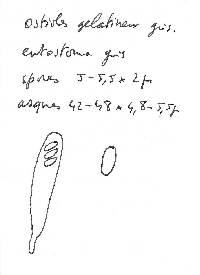 ostioles gelatineux gris.
entostroma gris
spores 5-5,5 * 2µ
asques 42-48 * 4,8-5,5µ